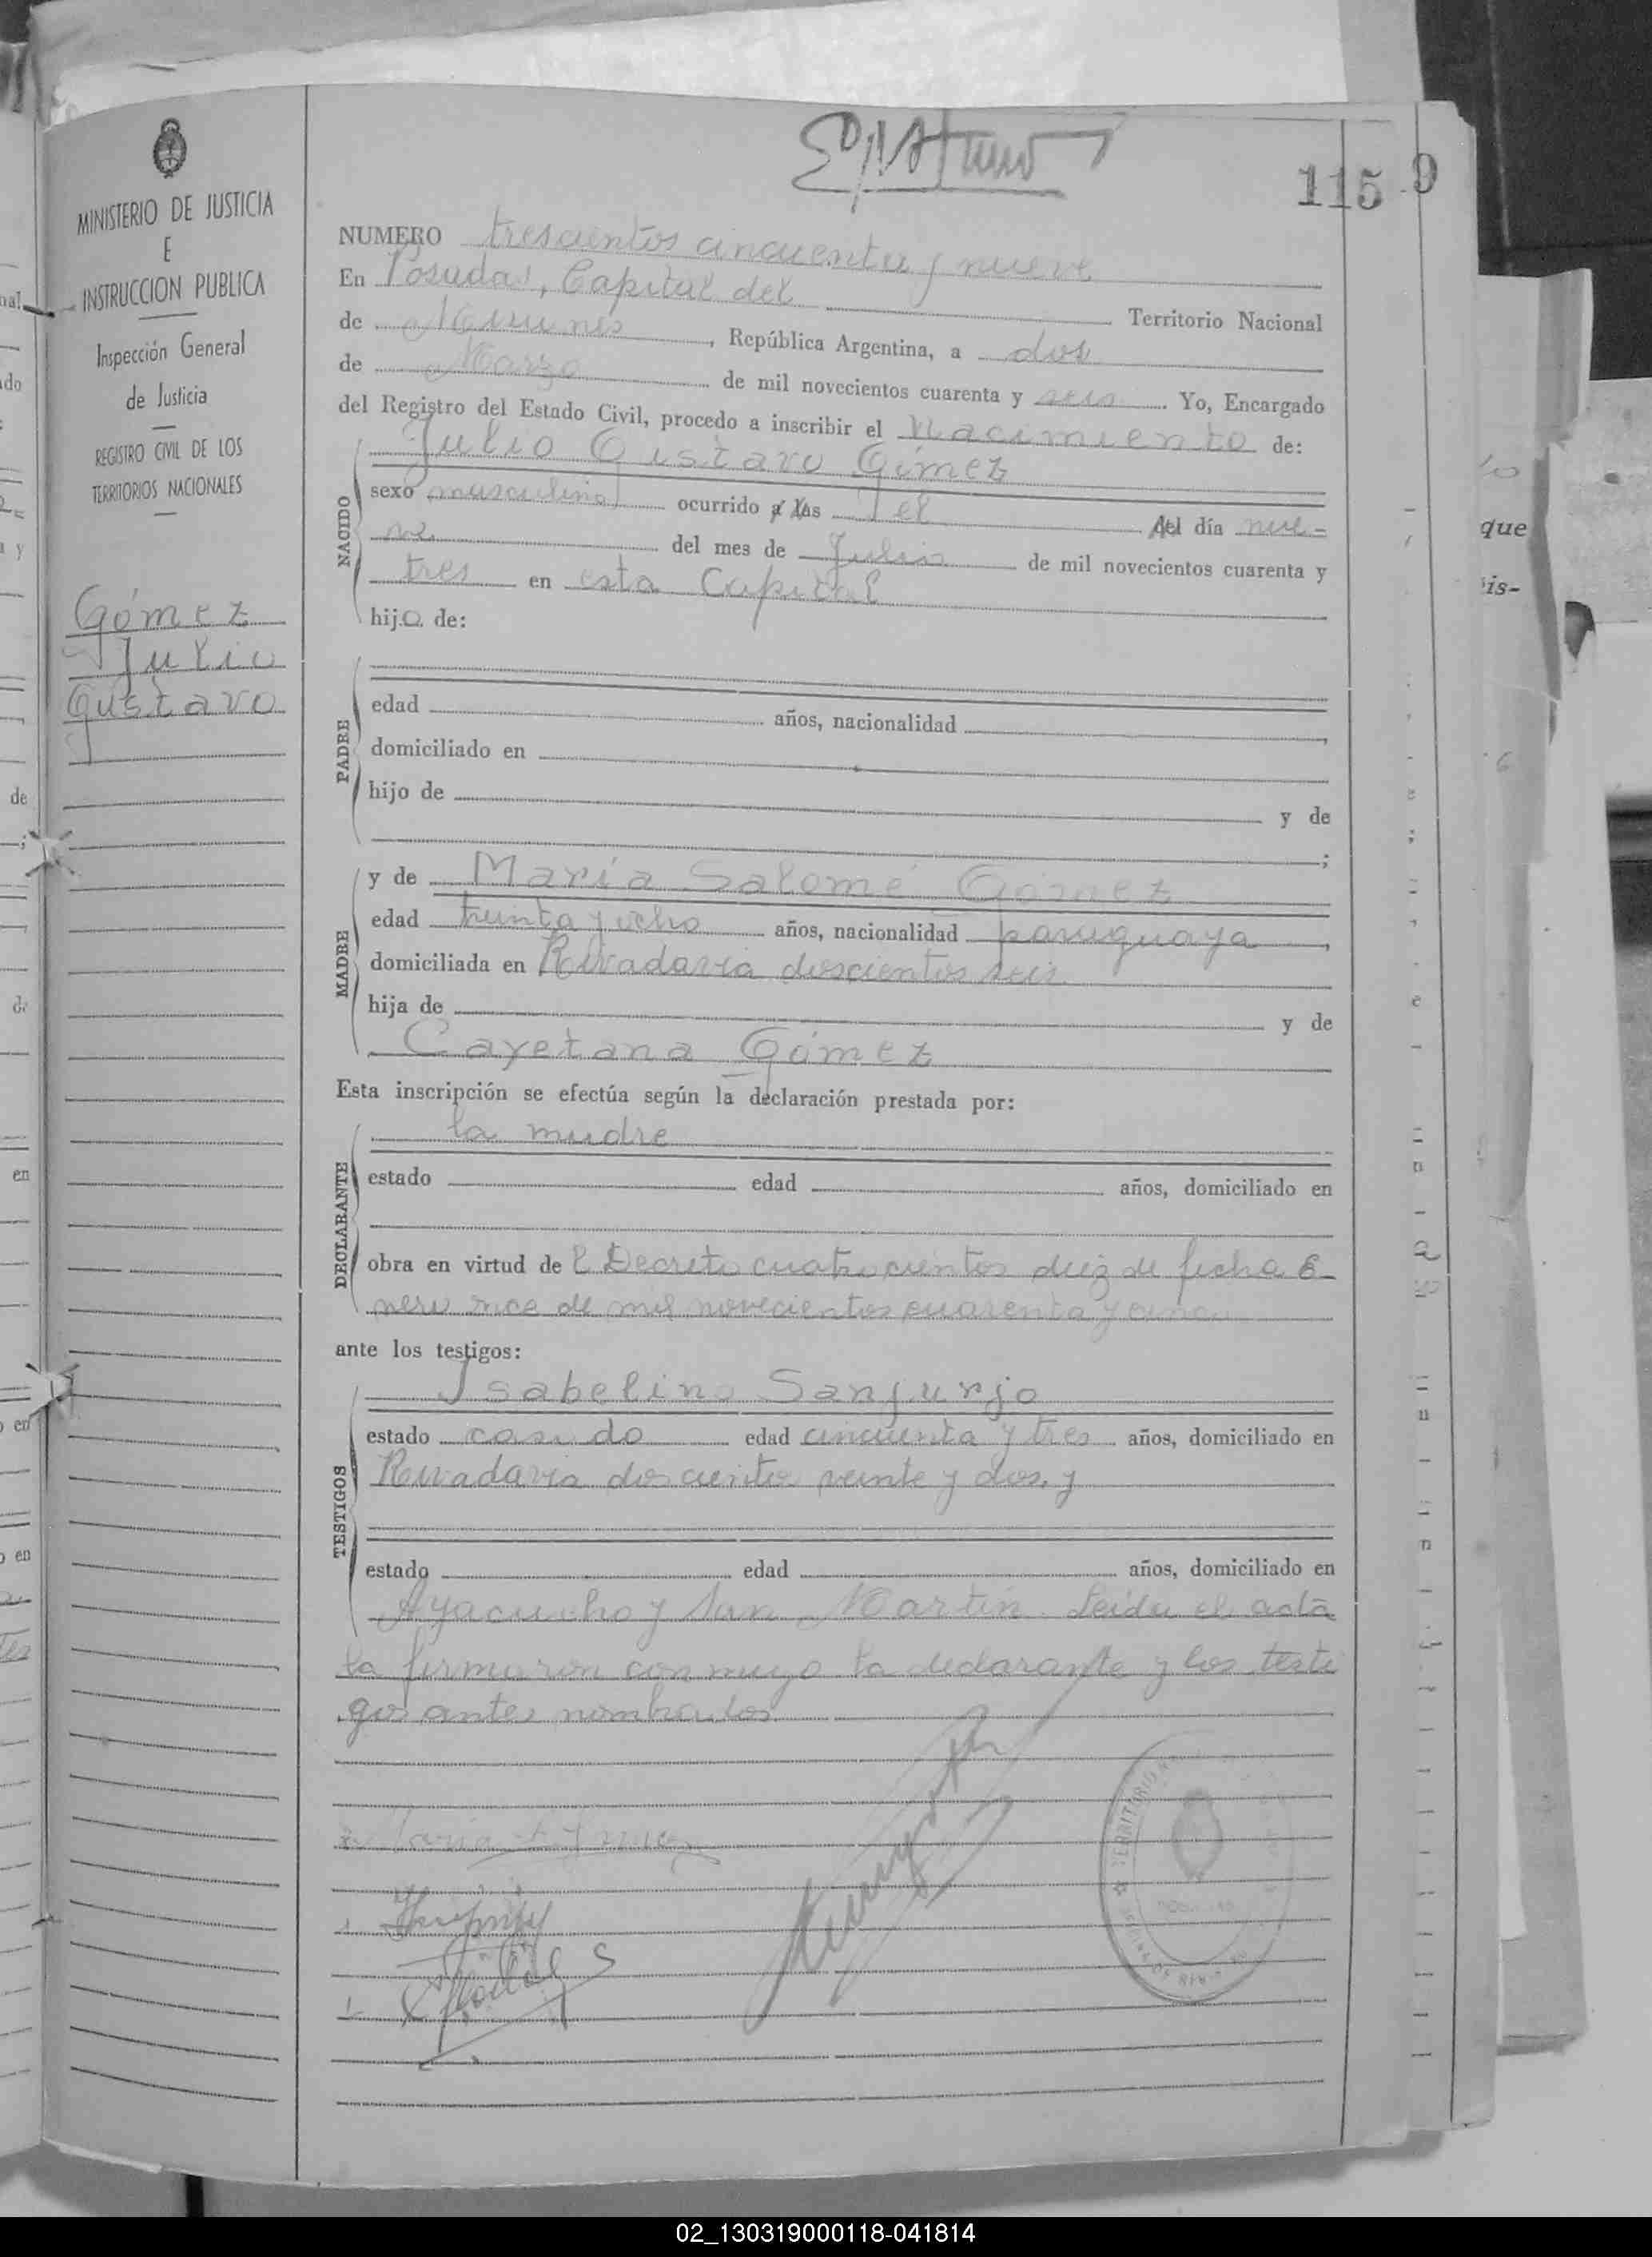 MINISTERIO DE JUSTICIA
E
INSTRUCCION PUBLICA
Inspección General
de Justicia
REGISTRO CIVIL DE LOS
TERRITORIOS NACIONALES
Gómez
Julio
Gustavo
115 9
NUMERO trescientos cincuenta y nueve
En Posadas, Capital del Territorio Nacional
de Misiones, República Argentina, a dos
de Marzo de mil novecientos cuarenta y seis. Yo, Encargado
del Registro del Estado Civil, procedo a inscribir el Nacimiento de:
Julio Gustavo Gómez
NACIDO
sexo masculino ocurrido a las el del día nue-
ve del mes de Julio de mil novecientos cuarenta y
tres en esta Capital
hijo de:
PADRE
edad años, nacionalidad ,
domiciliado en
hijo de y de
;
MADRE
y de María Salomé Gómez
edad treinta y ocho años, nacionalidad paraguaya,
domiciliada en Rivadavia doscientos seis
hija de y de
Cayetana Gómez
Esta inscripción se efectúa según la declaración prestada por:
DECLARANTE
la madre
estado edad años, domiciliado en
obra en virtud de l Decreto cuatrocientos diez de fecha E-
nero once de mil novecientos cuarenta y cinco
ante los testigos:
TESTIGOS
Isabelino Sanjurjo
estado casado edad cincuenta y tres años, domiciliado en
Rivadavia doscientos veinte y dos, y
estado edad años, domiciliado en
Ayacucho y San Martín. Leída el acta
la firmaron conmigo la declarante y los testi
gos antes nombrados
TERRITORIO
que
is-
de
en
02_130319000118-041814